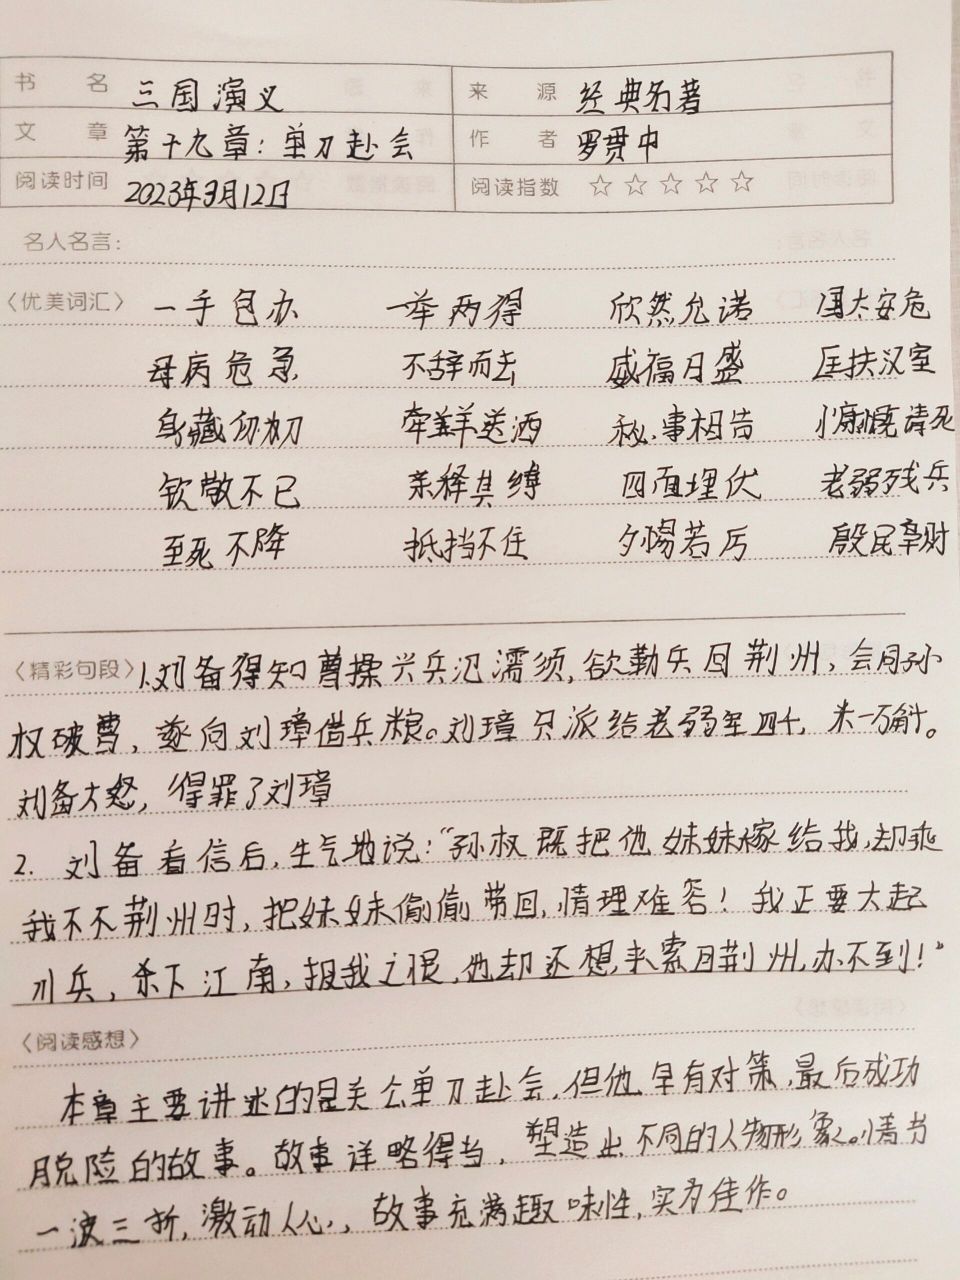 书 名 三国演义 来 源 经典名著
文 章 第十九章：单刀赴会 作 者 罗贯中
阅读时间 2023年3月12日 阅读指数 ☆☆☆☆☆
名人名言：
〈优美词汇〉 一手包办 一举两得 欣然允诺 国太安危
母病危急 不辞而去 威福日盛 匡扶汉室
身藏 牵羊送酒 秘事相告 慷慨请死
钦敬不已 亲释其缚 四面埋伏 老弱残兵
至死不降 抵挡不住 夕惕若厉 殷民阜财
〈精彩句段〉1.刘备得知曹操兴兵氾濡须,欲勤兵回荆州,会同孙
权破曹,遂向刘璋借兵粮。刘璋只派给老弱军四千,米一万斛。
刘备大怒,得罪了刘璋
2. 刘备看信后,生气地说:“孙权既把他妹妹嫁给我,却乘
我不不荆州时,把妹妹偷偷带回,情理难容!我正要大起
川兵,杀下江南,报我之恨,他却还想来索回荆州,办不到!”
〈阅读感想〉
本章主要讲述的是关公单刀赴会,但他早有对策,最后成功
脱险的故事。故事详略得当,塑造出不同的人物形象。情书
一波三折,激动人心,故事充满趣味性,实为佳作。